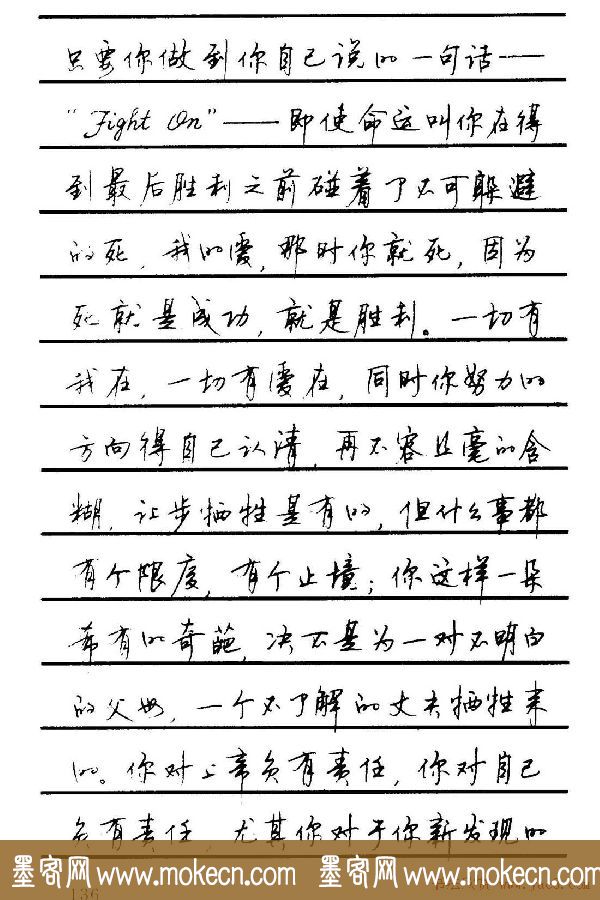 只要你做到你自己说的一句话——
“Fight On”——即使命运叫你在得
到最后胜利之前碰着了不可躲避
的死，我的爱，那时你就死，因为
死就是成功，就是胜利。一切有
我在，一切有爱在，同时你努力的
方向得自己认清，再不容丝毫的含
糊，让步牺牲是有的，但什么事都
有个限度，有个止境；你这样一朵
希有的奇葩，决不是为一对不明白
的父母，一个不了解的丈夫牺牲来
的。你对上帝负有责任，你对自己
负有责任，尤其你对于你新发现的
墨客网 www.mokecn.com 墨客网 www.mokecn.com
136